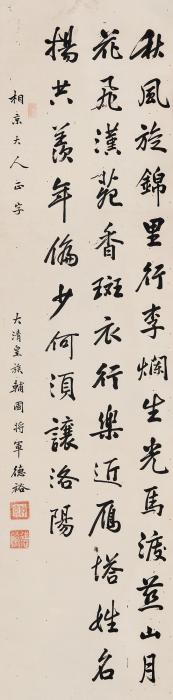 秋風旋錦里行李爛生光馬渡燕山月
花飛漢苑香斑衣行樂近雁塔姓名
揚共羨年偏少何須讓洛陽
相京大人正字
大清皇族輔國將軍德裕